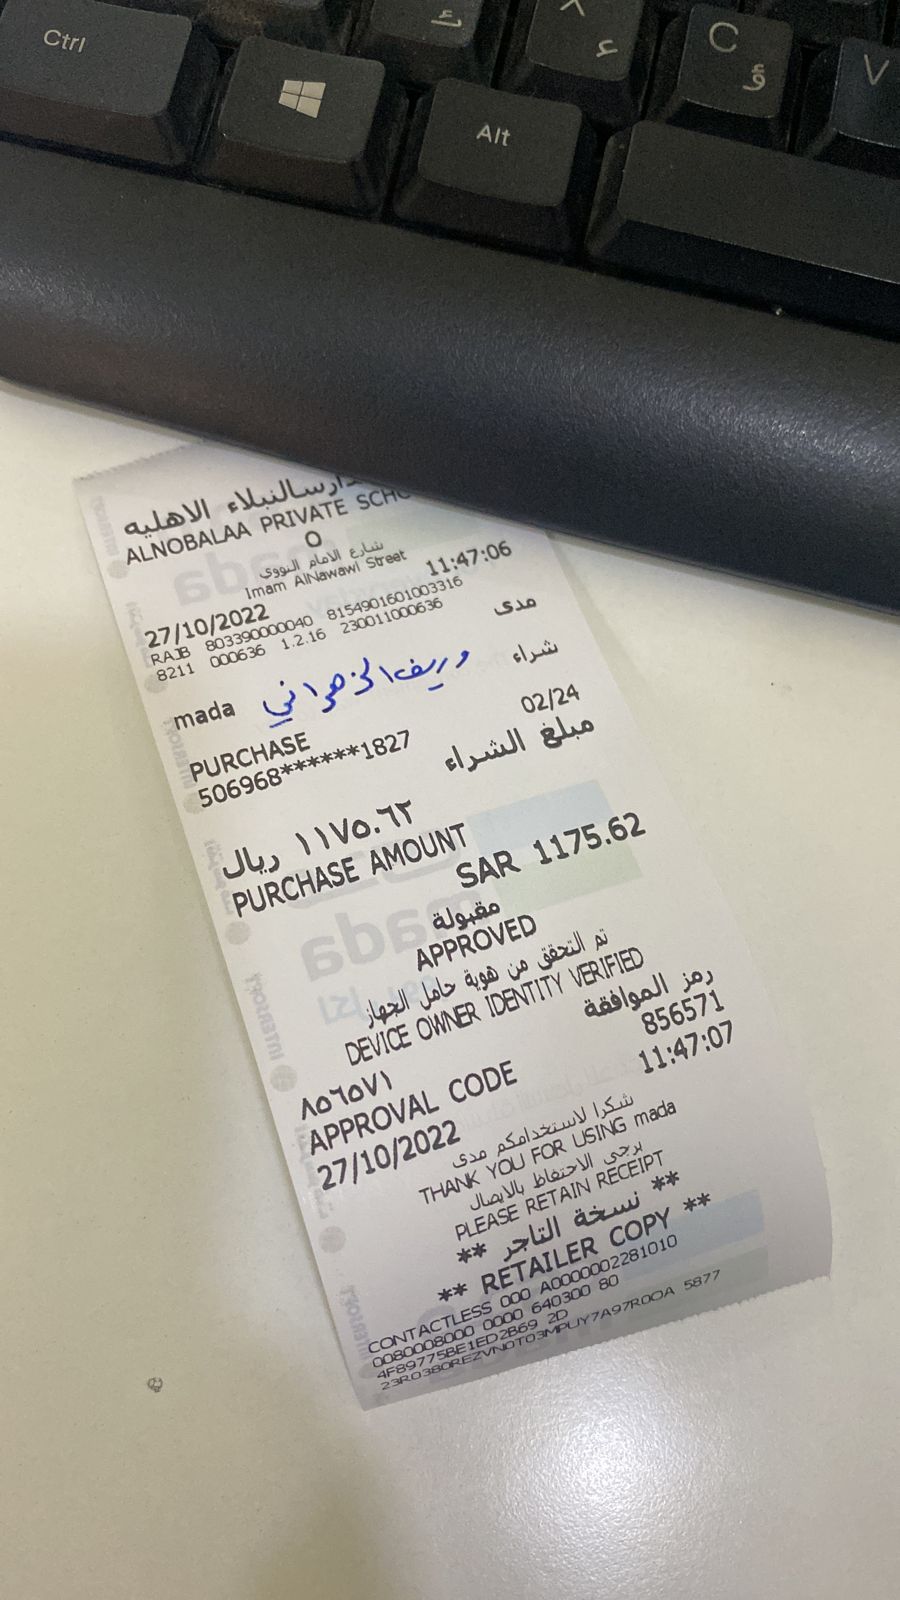 Ctrl
Alt
C
V
مدارس النبلاء الاهليه
ALNOBALAA PRIVATE SCHO
O
شارع الامام النووي
Imam AlNawawi Street
27/10/2022 11:47:06
RAJB 803390000040 8154901601003316
8211 000636 1.2.16 230011000636
مدى
mada
وريف الزهراني
شراء
PURCHASE
506968******1827 02/24
مبلغ الشراء
١١٧٥.٦٢ ريال
PURCHASE AMOUNT
SAR 1175.62
مقبولة
APPROVED
تم التحقق من هوية حامل الجهاز
DEVICE OWNER IDENTITY VERIFIED
رمز الموافقة
٨٥٦٥٧١
856571
APPROVAL CODE
27/10/2022 11:47:07
شكرا لاستخدامكم مدى
THANK YOU FOR USING mada
يرجى الاحتفاظ بالايصال
PLEASE RETAIN RECEIPT
** نسخة التاجر **
** RETAILER COPY **
CONTACTLESS 000 A0000002281010
0080008000 0000 640300 80
4F89775BE1ED2B69 2D
5877